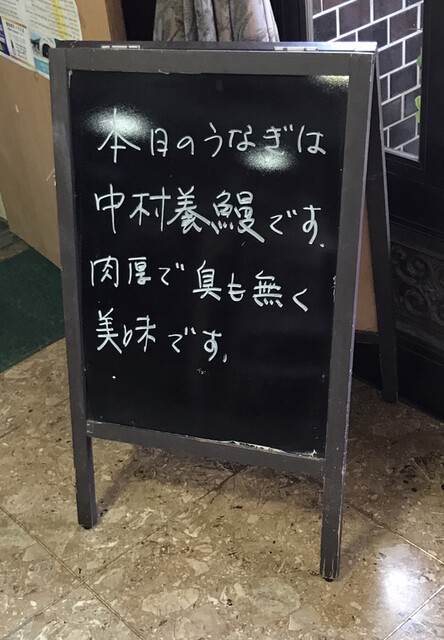 本日のうなぎは
中村養鰻です.
肉厚で臭も無く
美味です.